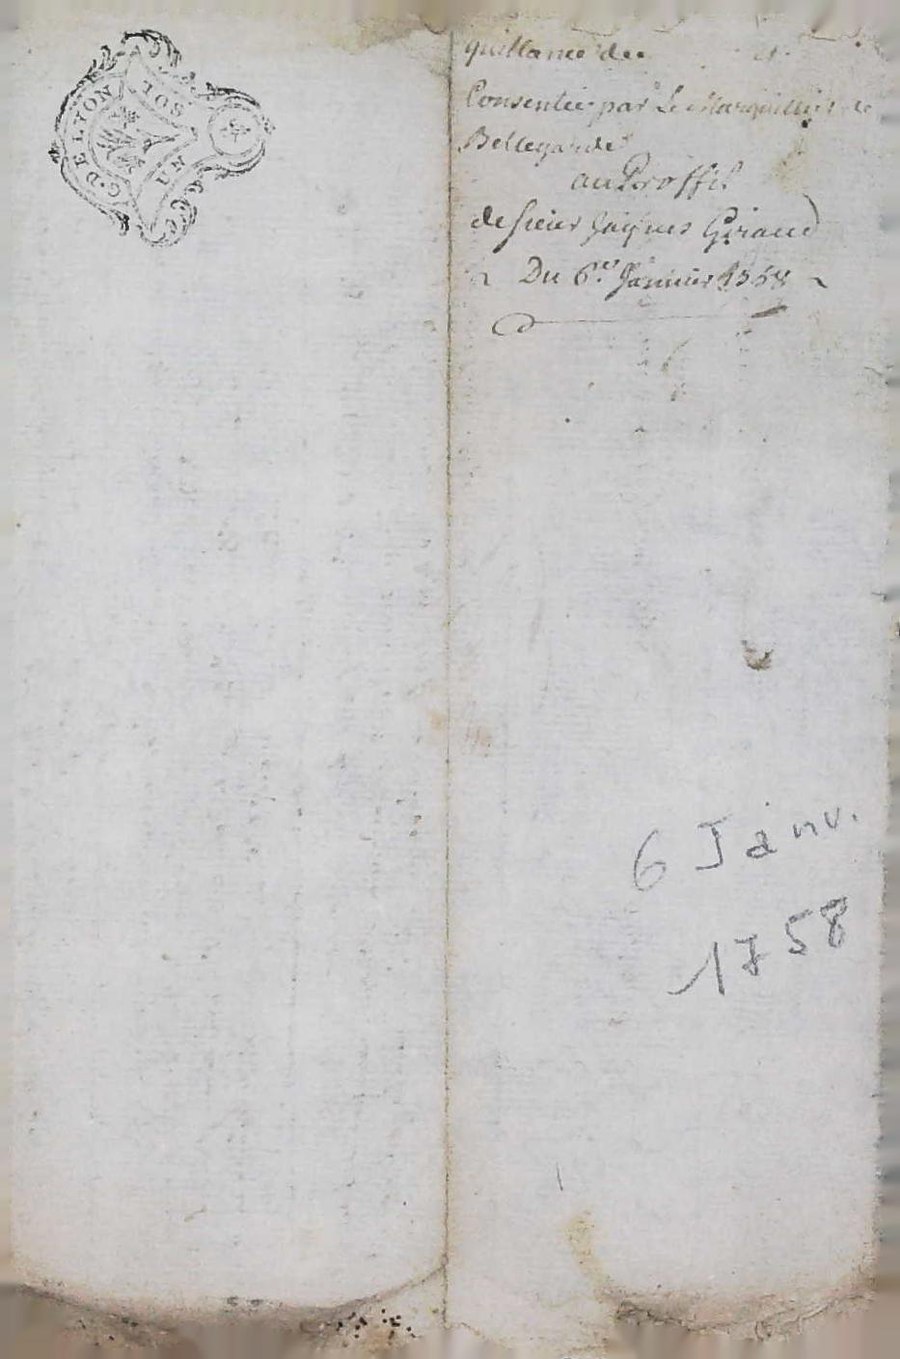 G. DE LYON
UN SOL
quittance de
Consentie par Le Marguillier de
Bellegarde
au Proffit
de sieur Jaques Giraud
Du 6.er Janvier 1758
6 Janv.
1758